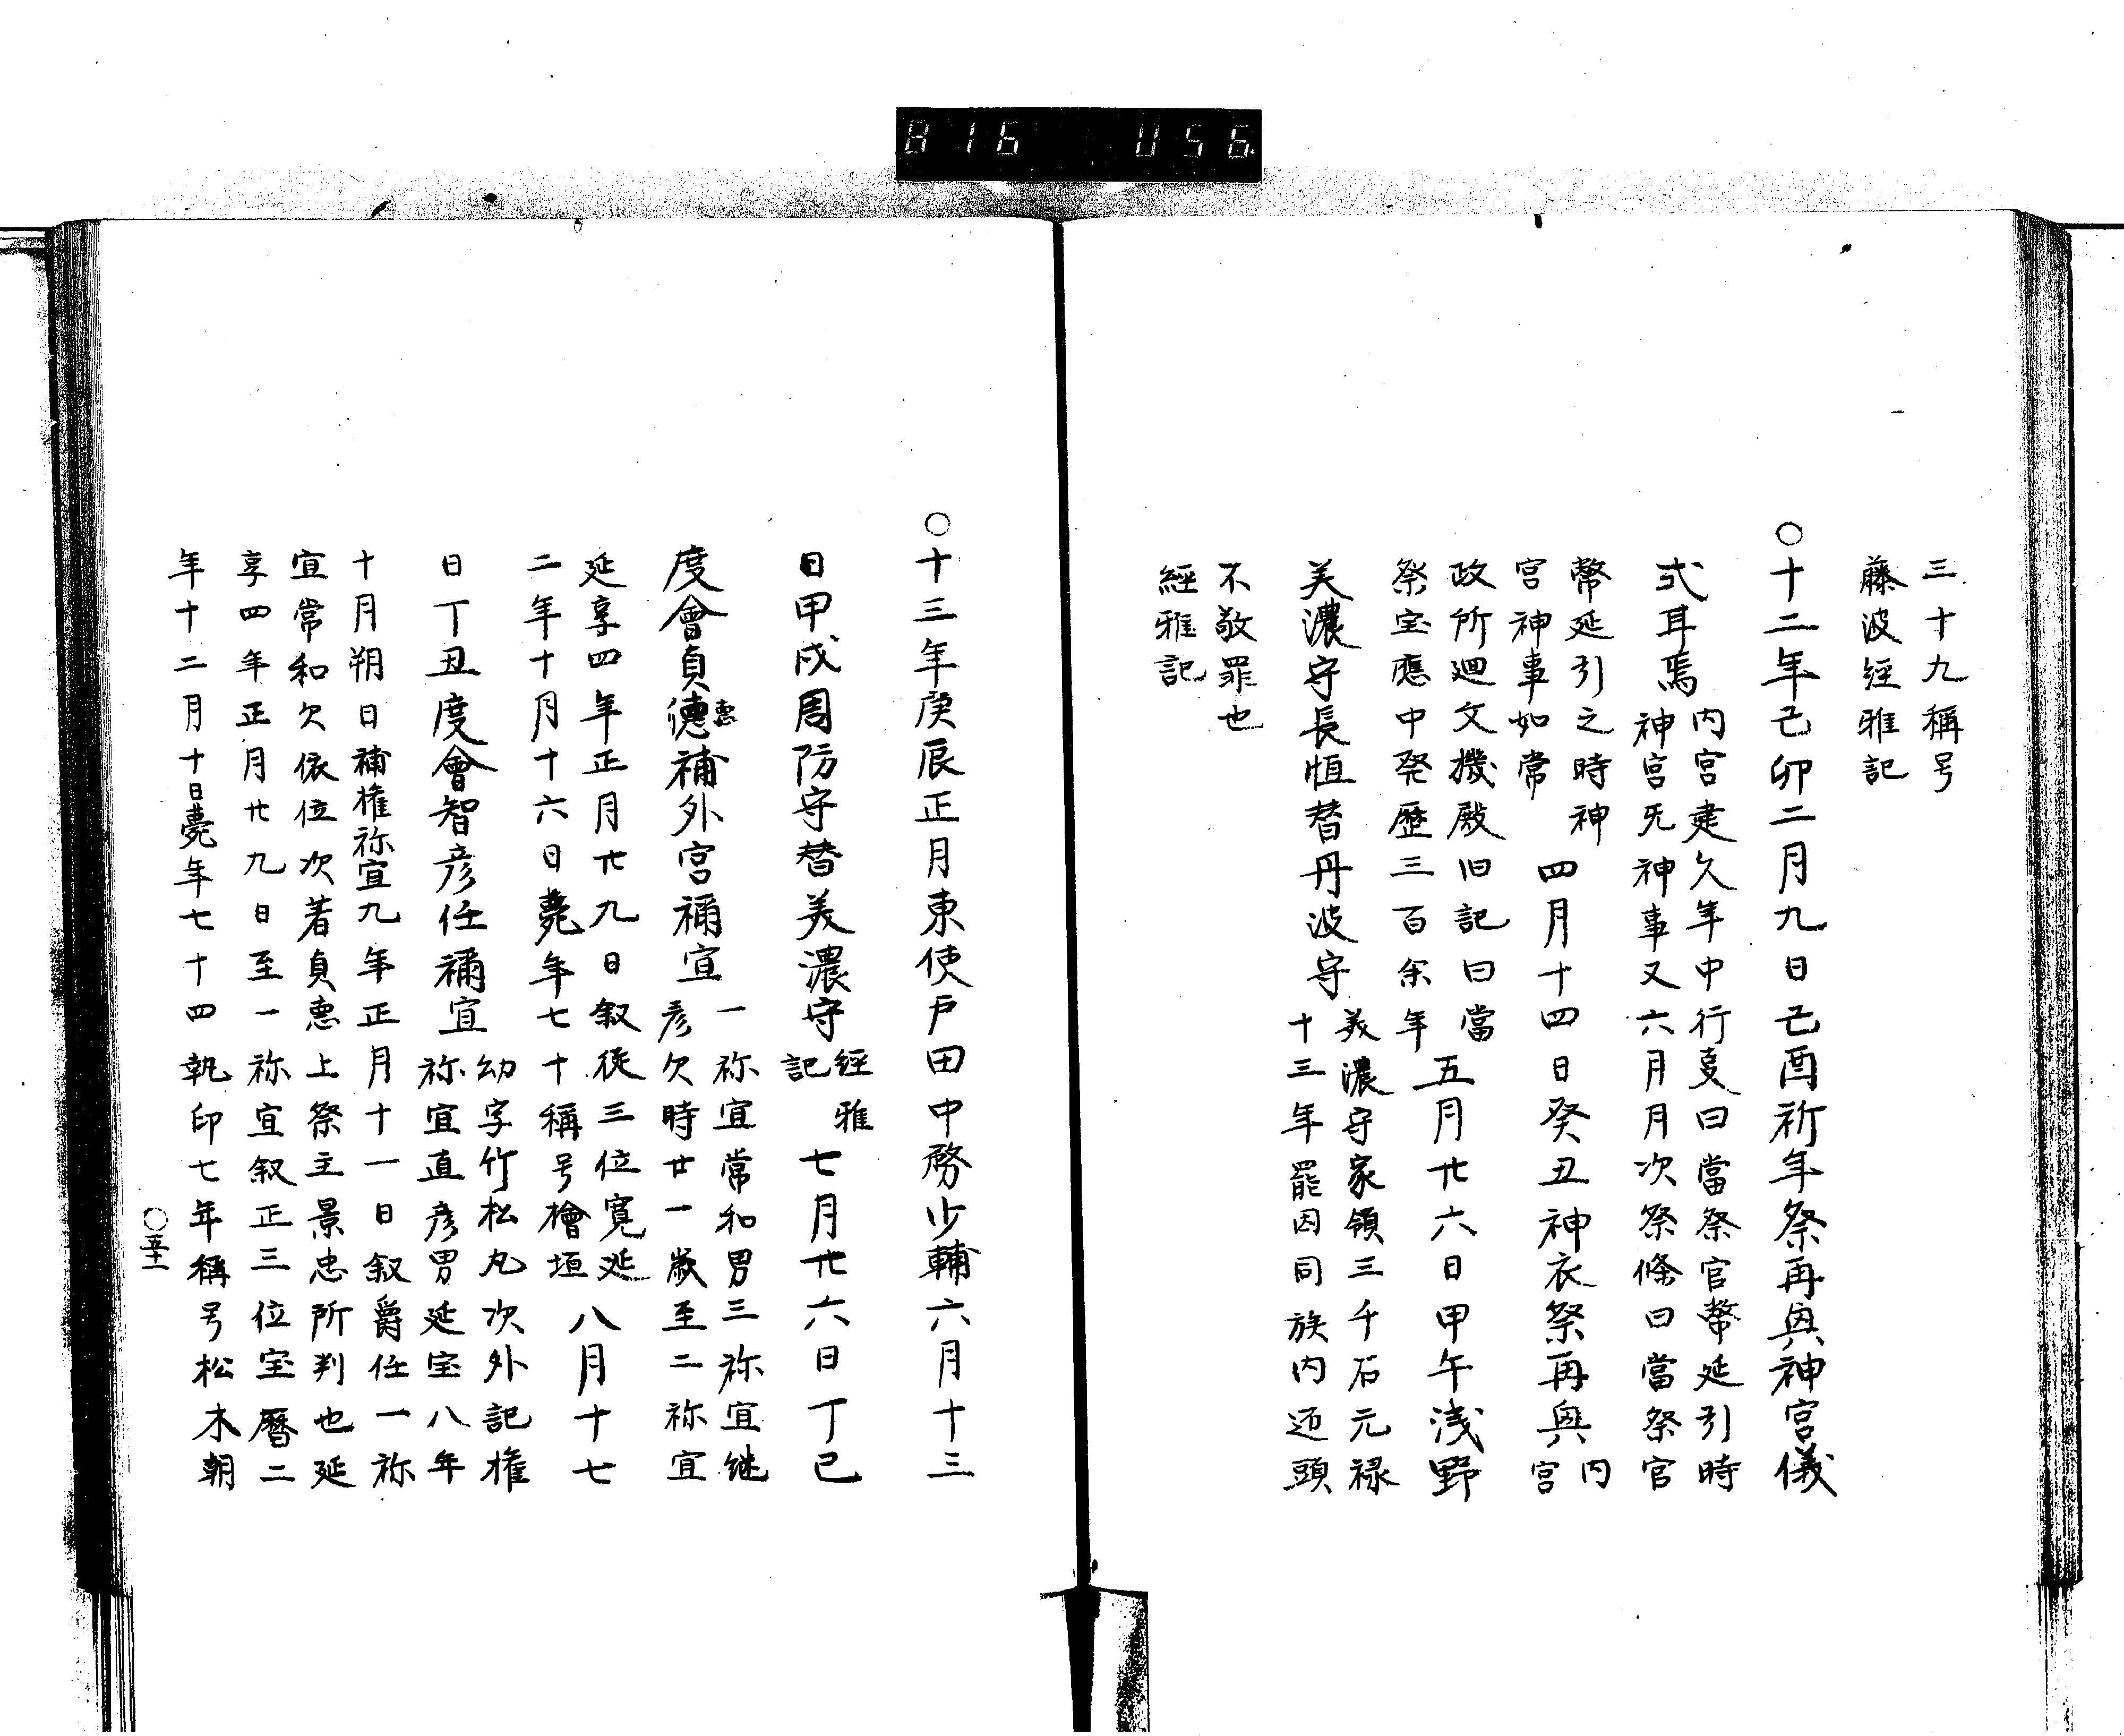 816 056
三十九稱号
藤波経雅記
○十二年己卯二月九日己酉祈年祭再興神宮儀
式耳焉
内宮建久年中行㕝曰當祭官幣延引時
神宮旡神事又六月月次祭條曰當祭官
幣延引之時神
宮神事如常
四月十四日癸丑神衣祭再興
内
宮
政所廻文機殿旧記曰當
祭宝應中癸歴三百余年
五月廿六日甲午浅野
美濃守長恒替丹波守
美濃守家領三千石元禄
十三年罷因同族内迊頭
不敬罪也
經雅記
○十三年庚辰正月東使戸田中務少輔六月十三
日甲戌周防守替美濃守
経雅
記
七月廿六日丁巳
度會貞德補外宮禰宜
恵
一祢宜常和男三祢宜継
彦欠時廿一歳至二祢宜
延享四年正月廿九日叙從三位寛延
二年十月十六日薨年七十稱号檜垣
八月十七
日丁丑度會智彦任禰宜
幼字竹松丸次外記権
祢宜直彦男延宝八年
十月朔日補権祢宜九年正月十一日叙爵任一祢
宜常和欠依位次著貞恵上祭主景忠所判也延
享四年正月廿九日至一祢宜叙正三位宝暦二
年十二月十日薨年七十四執印七年稱号松木朝
○五十一